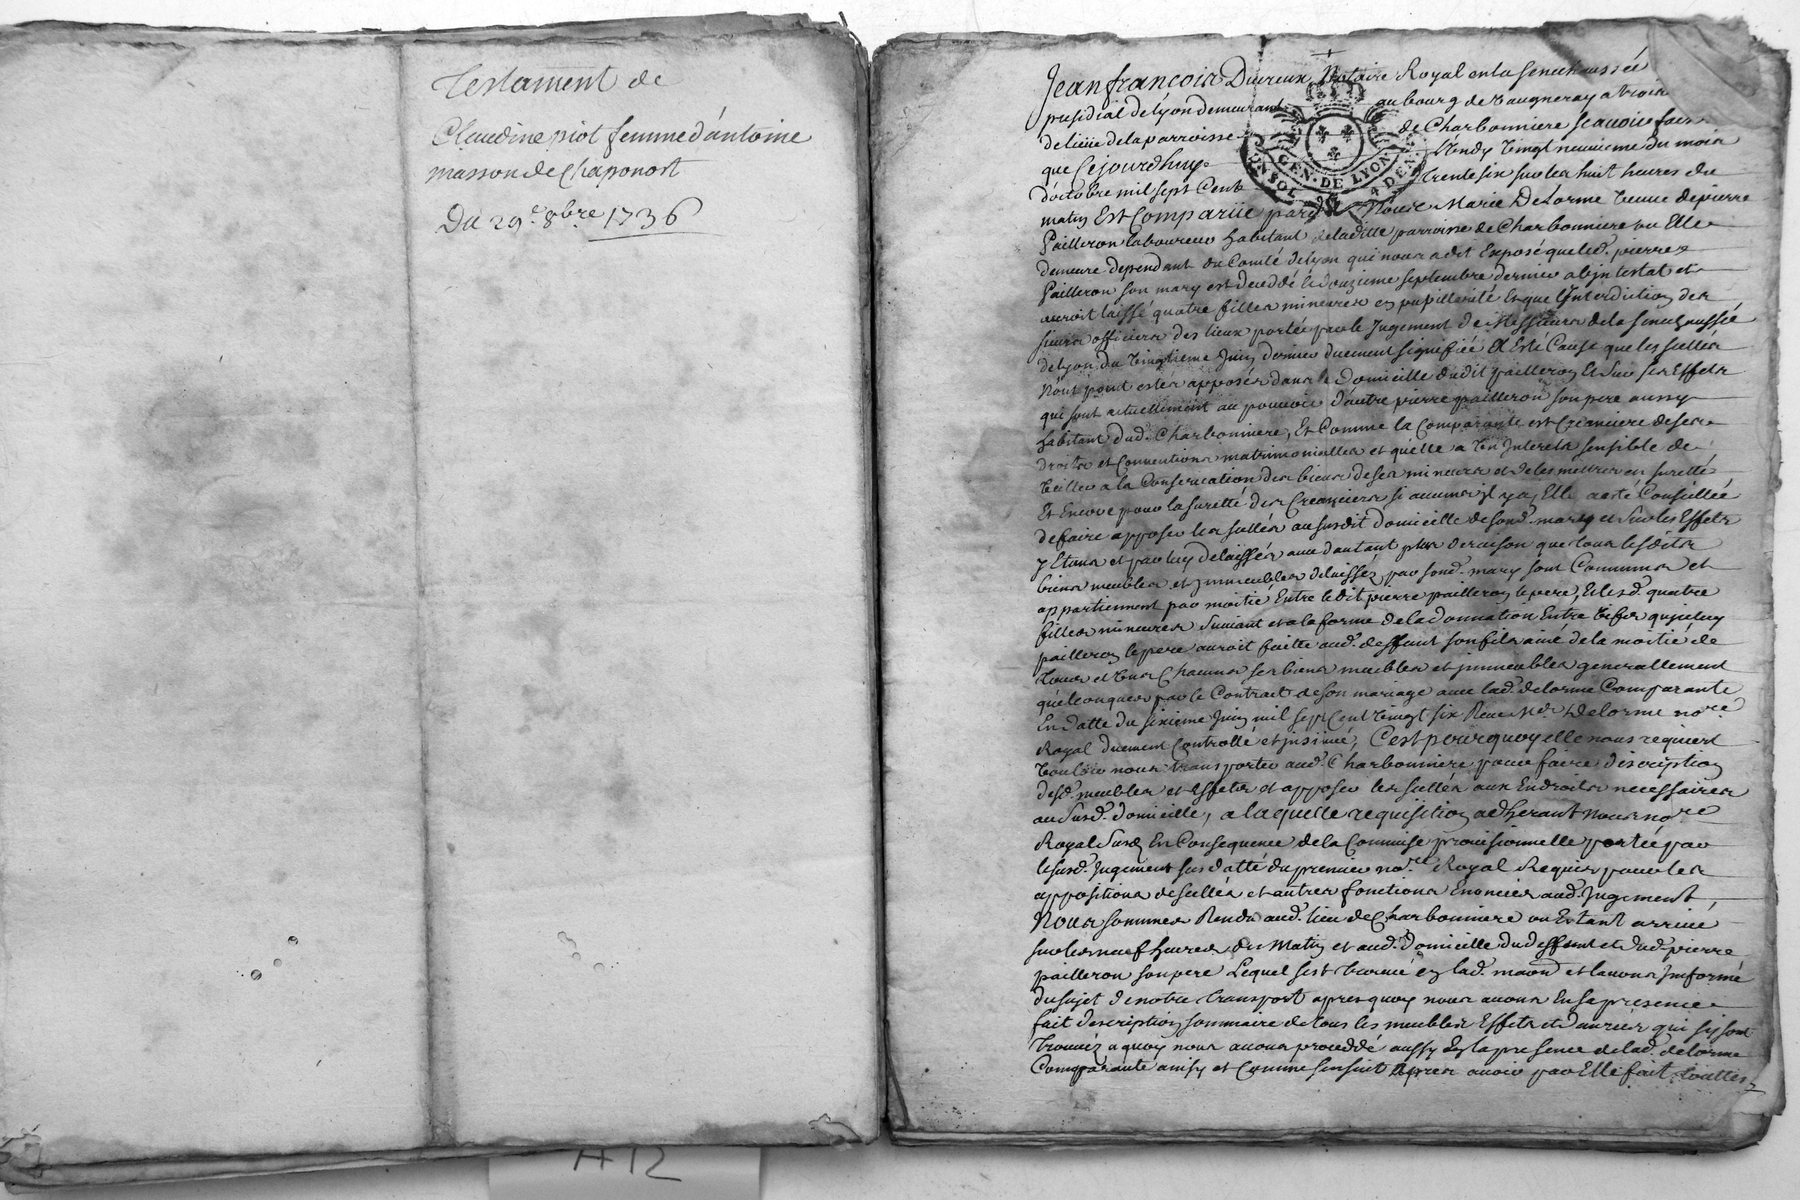 Testament de
Claudine piot femme d'antoine
masson de Chaponost
Du 29e 8bre 1736
Jean francois Ducreux Notaire Royal en la senechaussée
presidial de Lyon demeurant au bourg de Vaugneray a trois
de lieüe de la parroisse de Charbonniere scavoir fais
que Cejourdhuy Vendy Vingt neuvieme du mois
d'octobre mil sept Cent trente six sur les huit heures du
matin Est Comparüe pard. Nous Marie Delorme Veuve de pierre
pailleron laboureur habitant de ladite parroisse de Charbonniere ou Elle
demeure dependant du Comté de Lyon qui nous a dit Exposé que led. pierre
pailleron son mary est decedé le douzieme septembre dernier abjntestat et
auroit laissé quatre filles mineures en pupillarité Et que l'Interdiction des
sieurs officiers des lieux portée par le Jugement de Messieurs de la senechaussée
de Lyon du Vingtieme Juin dernier duement signifiée A Esté Cause que les scellés
N'ont point estés apposés dans le Domicille dudit pailleron Et Sur ses Effets
qui sont actuellement au pouvoir d'autre pierre pailleron son pere aussy
habitant dud. Charbonniere, Et Comme la Comparante est Creanciere de ses
droits et Conventions matrimonialles et qu'elle a Un Interets sensible de
Veiller a la Conservation des biens de ses mineures et de les mettres en suretté
Et Encore pour la suretté des Creanciers si aucuns jl y a, Elle a esté Conseillée
de faire apposer les scellés au susdit domicille de sond. mary et Sur les Effets
y Etans et par luy delaissés avec dautant plus de raison que tous lesdits
biens meubles et jmmeubles delaissez par sond. mary sont Communs et
appartiennent par moitié Entre ledit pierre pailleron le pere, Et lesd. quatre
filles mineures Suivant et a la forme de la donnation Entre Vifs qu'jceluy
pailleron le pere auroit faitte aud. deffunt son fils ainé de la moitié de
tous et Uns Chacuns ses biens meubles et jmmeubles generallement
quelconques par le Contract de son mariage avec lad. delorme Comparante
En datte du sixieme Juin mil sept Cent Vingt six Receu Me Delorme nore
Royal duement Controllé et jnsinué, C'est pourquoy elle nous requiert
Vouloir nous transporter aud. Charbonniere pour faire discription
desd. meubles et Effets et apposer les scellés aux Endroits necessaires
au Susd. domicille, a laquelle requisition adherant Nous nore
Royal Susd. En Consequence de la Commise provisionnelle portée par
le susd. Jugement sus datté du premier nore Royal Requis pour les
appositions de scellés et autres fonctions Enoncées aud. Jugement,
Nous sommes Rendu aud. lieu de Charbonniere ou Estant arrivé
sur les neuf heures du Matin et aud. Domicille du deffunt et dud. pierre
pailleron son pere Lequel s'est trouvé en lad. maon et l'avons Informé
du sujet de notre transport apres quoy nous avons En sa presence
fait description sommaire de tous les meubles Effets et danrées qui s'y sont
trouvéz a quoy nous avons proceddé aussy En la presence de lad. delorme
Comparante ainsy et Comme sensuit Apres avoir par Elle fait touttes
GEN. DE LYON
A 12